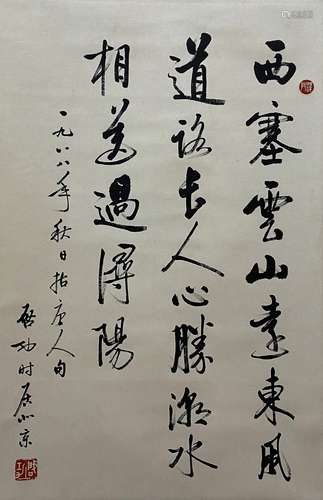 西塞雲山遠東風
道路長人心勝潮水
相送過潯陽
一九八八年秋日拈唐人句
啟功時居北京